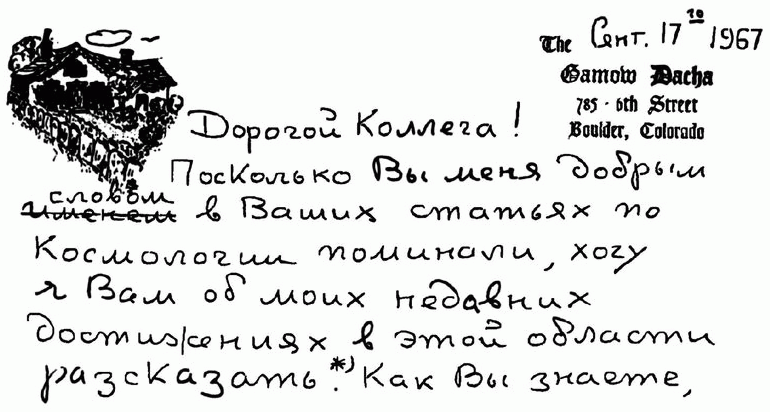 Сент. 17го 1967
The
Gamow Dacha
785 · 6th Street
Boulder, Colorado
Дорогой Коллега!
Поскольку Вы меня добрым
словом
именем в Ваших статьях по
Космологии поминали, хочу
я Вам об моих недавних
достижениях в этой области
разсказать.*) Как Вы знаете,